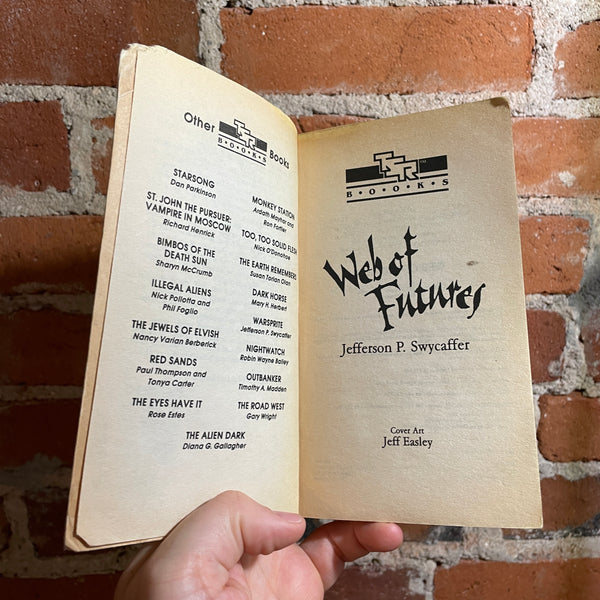 Other TSR Books
B·O·O·K·S
STARSONG
Dan Parkinson
ST. JOHN THE PURSUER:
VAMPIRE IN MOSCOW
Richard Henrick
BIMBOS OF THE
DEATH SUN
Sharyn McCrumb
ILLEGAL ALIENS
Nick Pollotta and
Phil Foglio
THE JEWELS OF ELVISH
Nancy Varian Berberick
RED SANDS
Paul Thompson and
Tonya Carter
THE EYES HAVE IT
Rose Estes
MONKEY STATION
Ardath Mayhar and
Ron Fortier
TOO, TOO SOLID FLESH
Nick O'Donohoe
THE EARTH REMEMBERS
Susan Torian Olan
DARK HORSE
Mary H. Herbert
WARSPRITE
Jefferson P. Swycaffer
NIGHTWATCH
Robin Wayne Bailey
OUTBANKER
Timothy A. Madden
THE ROAD WEST
Gary Wright
THE ALIEN DARK
Diana G. Gallagher
TSR™
B·O·O·K·S
Web of
Futures
Jefferson P. Swycaffer
Cover Art
Jeff Easley